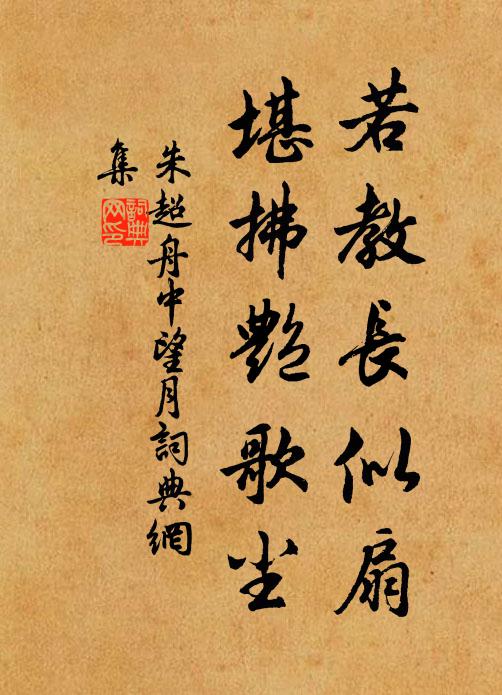 若教長似扇
堪拂艷歌尘
朱超舟中望月詞典網
集
詞典
网印